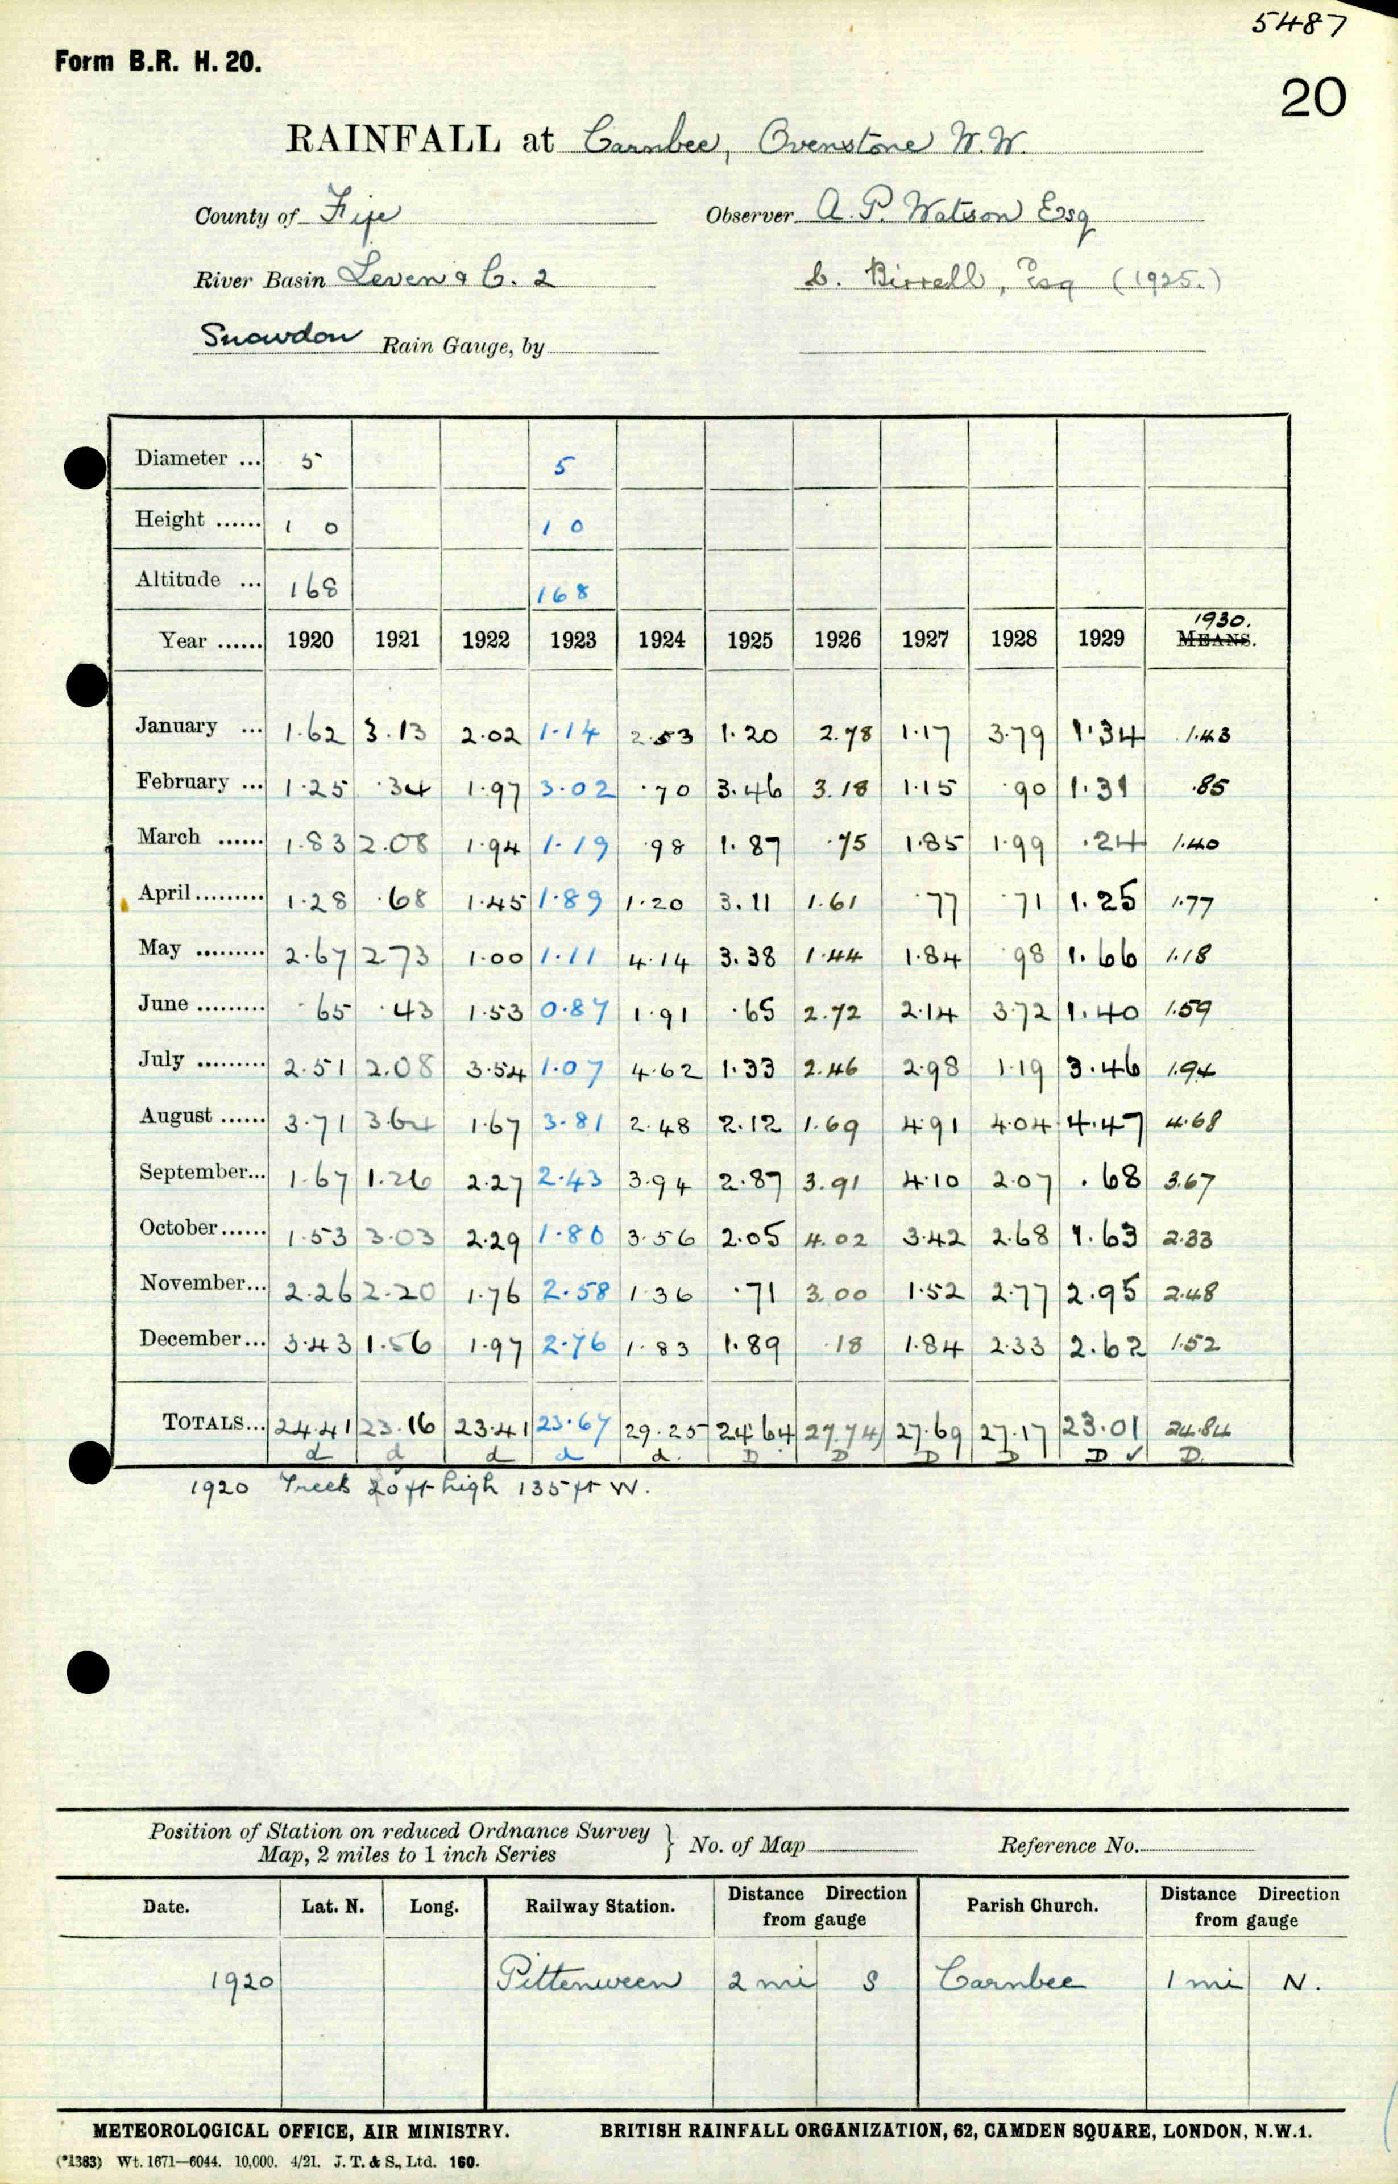 5487
Form B.R. H. 20.
20
RAINFALL at Carnbee, Ovenstone W.W.
County of Fife Observer A. P. Watson Esq
River Basin Leven & C. 2 C. Birrell, Esq (1925.)
Snowdon Rain Gauge, by
Diameter ... 5 5
Height ...... 1 0 1 0
Altitude ... 168 168
1930.
Year ...... 1920 1921 1922 1923 1924 1925 1926 1927 1928 1929 MEANS.
January ... 1.62 3.13 2.02 1.14 2.53 1.20 2.78 1.17 3.79 1.34 1.43
February ... 1.25 .34 1.97 3.02 .70 3.46 3.18 1.15 .90 1.31 .85
March ...... 1.83 2.08 1.94 1.19 .98 1.87 .75 1.85 1.99 .24 1.40
April ......... 1.28 .68 1.45 1.89 1.20 3.11 1.61 .77 .71 1.25 1.77
May ......... 2.67 2.73 1.00 1.11 4.14 3.38 1.44 1.84 .98 1.66 1.18
June ......... .65 .43 1.53 0.87 1.91 .65 2.72 2.14 3.72 1.40 1.59
July ......... 2.51 2.08 3.54 1.07 4.62 1.33 2.46 2.98 1.19 3.46 1.94
August ...... 3.71 3.64 1.67 3.81 2.48 2.12 1.69 4.91 4.04 4.47 4.68
September... 1.67 1.26 2.27 2.43 3.94 2.87 3.91 4.10 2.07 .68 3.67
October...... 1.53 3.03 2.29 1.80 3.56 2.05 4.02 3.42 2.68 1.63 2.33
November... 2.26 2.20 1.76 2.58 1.36 .71 3.00 1.52 2.77 2.95 2.48
December... 3.43 1.56 1.97 2.76 1.83 1.89 .18 1.84 2.33 2.62 1.52
TOTALS... 24.41 23.16 23.41 23.67 29.25 24.64 27.74 27.69 27.17 23.01 24.84
d d d d d. D D D D D ✓ D.
1920 Trees 20 ft high 135 ft W.
Position of Station on reduced Ordnance Survey Map, 2 miles to 1 inch Series } No. of Map Reference No.
Date. Lat. N. Long. Railway Station. Distance Direction from gauge Parish Church. Distance Direction from gauge
1920 Pittenween 2 mi S Carnbee 1 mi N.
METEOROLOGICAL OFFICE, AIR MINISTRY. BRITISH RAINFALL ORGANIZATION, 62, CAMDEN SQUARE, LONDON, N.W.1.
(*1383) Wt. 1671—6044. 10,000. 4/21. J. T. & S., Ltd. 160.